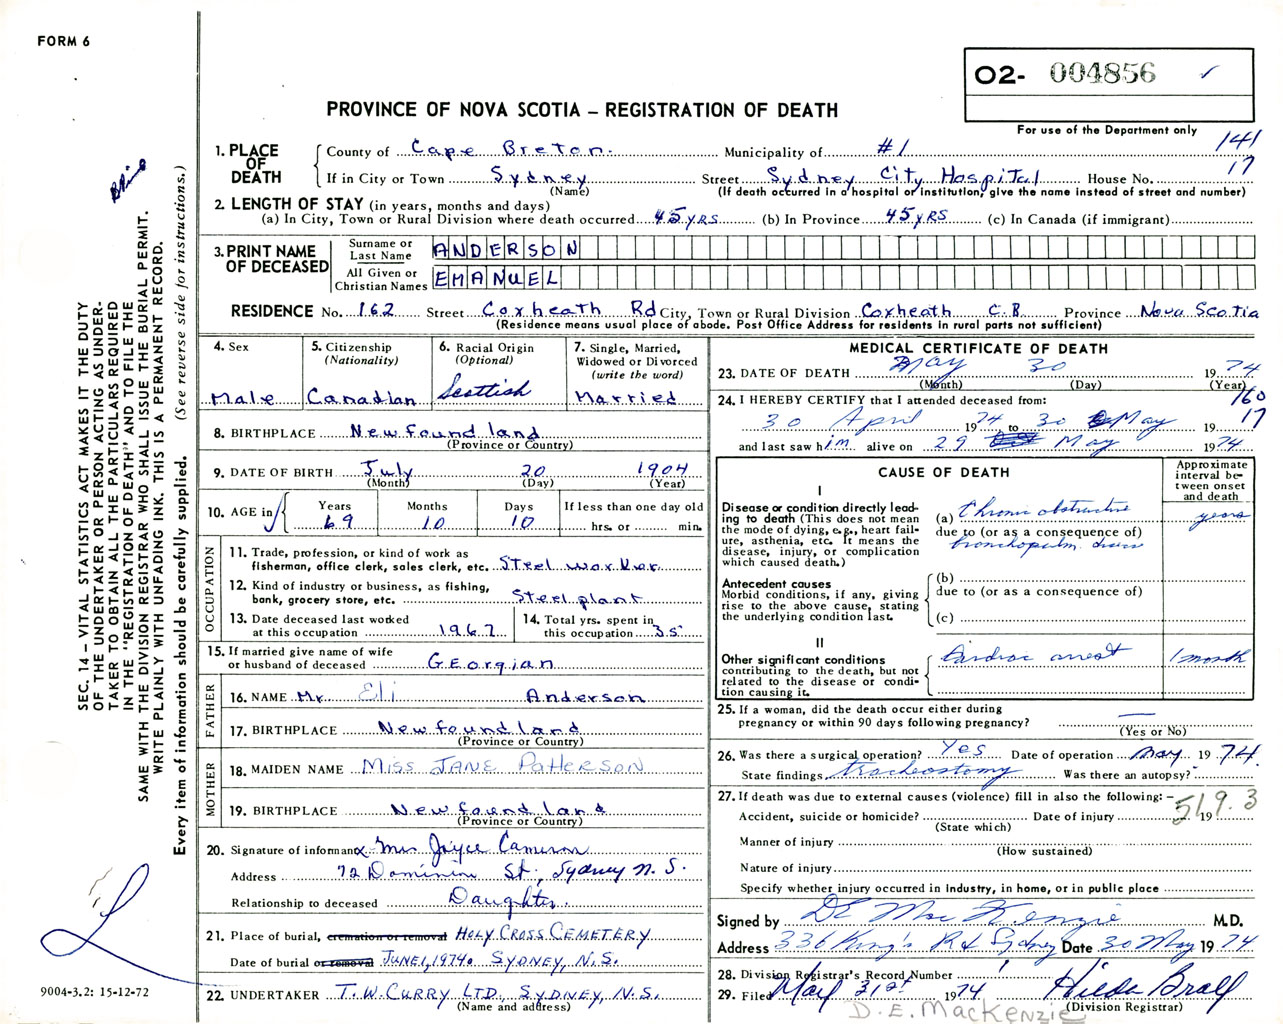 FORM 6
O2- 004856 ✓
PROVINCE OF NOVA SCOTIA – REGISTRATION OF DEATH
For use of the Department only
141
17
1. PLACE OF DEATH
County of Cape Breton. Municipality of #1
If in City or Town Sydney Street Sydney City Hospital House No.
(Name) (If death occurred in a hospital or institution, give the name instead of street and number)
2. LENGTH OF STAY (in years, months and days)
(a) In City, Town or Rural Division where death occurred 45 yRS (b) In Province 45 yRS (c) In Canada (if immigrant)
3. PRINT NAME OF DECEASED
Surname or Last Name ANDERSON
All Given or Christian Names EMANUEL
RESIDENCE No. 162 Street Coxheath Rd City, Town or Rural Division Coxheath C.B Province Nova Scotia
(Residence means usual place of abode. Post Office Address for residents in rural parts not sufficient)
4. Sex
Male
5. Citizenship
(Nationality)
Canadian
6. Racial Origin
(Optional)
Scottish
7. Single, Married,
Widowed or Divorced
(write the word)
Married
8. BIRTHPLACE Newfoundland
(Province or Country)
9. DATE OF BIRTH July 20 1904
(Month) (Day) (Year)
10. AGE in
Years Months Days If less than one day old
69 10 10 hrs. or min.
OCCUPATION
11. Trade, profession, or kind of work as
fisherman, office clerk, sales clerk, etc. Steel worker
12. Kind of industry or business, as fishing,
bank, grocery store, etc. Steel plant
13. Date deceased last worked
at this occupation 1967
14. Total yrs. spent in
this occupation 35
15. If married give name of wife
or husband of deceased GEorgian
FATHER
16. NAME Mr. Eli Anderson
17. BIRTHPLACE Newfoundland
(Province or Country)
MOTHER
18. MAIDEN NAME Miss JANE PATTERSON
19. BIRTHPLACE Newfoundland
(Province or Country)
20. Signature of informant x Mrs Joyce Cameron
Address 72 Dominion St., Sydney N.S.
Relationship to deceased Daughter.
21. Place of burial, cremation or removal HOLY CROSS CEMETERY
Date of burial or removal JUNE 1, 1974. SYDNEY, N.S.
22. UNDERTAKER T.W. CURRY LTD., SYDNEY, N.S.
(Name and address)
MEDICAL CERTIFICATE OF DEATH
23. DATE OF DEATH May 30 1974
(Month) (Day) (Year)
160
17
24. I HEREBY CERTIFY that I attended deceased from:
30 April 1974 to 30 May 19
and last saw him alive on 29 May 1974
CAUSE OF DEATH
Approximate interval between onset and death
I
Disease or condition directly leading to death (This does not mean the mode of dying, e.g., heart failure, asthenia, etc. It means the disease, injury, or complication which caused death.)
(a) Chronic obstructive years
due to (or as a consequence of)
bronchopulm. disease
Antecedent causes
Morbid conditions, if any, giving rise to the above cause, stating the underlying condition last.
(b)
due to (or as a consequence of)
(c)
II
Other significant conditions
contributing to the death, but not related to the disease or condition causing it.
Cardiac arrest 1 month
25. If a woman, did the death occur either during
pregnancy or within 90 days following pregnancy? —
(Yes or No)
26. Was there a surgical operation? Yes Date of operation May 1974.
State findings tracheostomy Was there an autopsy? -
27. If death was due to external causes (violence) fill in also the following: –
519.3
Accident, suicide or homicide? Date of injury 19
(State which)
Manner of injury
(How sustained)
Nature of injury
Specify whether injury occurred in industry, in home, or in public place
Signed by DE MacKenzie M.D.
Address 336 King's Rd Sydney Date 30 May 1974
28. Division Registrar's Record Number 1
29. Filed May 31st 1974 Hilda Brall
(Division Registrar)
D. E. MacKenzie
SEC. 14 – VITAL STATISTICS ACT MAKES IT THE DUTY
OF THE UNDERTAKER OR PERSON ACTING AS UNDER-
TAKER TO OBTAIN ALL THE PARTICULARS REQUIRED
IN THE "REGISTRATION OF DEATH" AND TO FILE THE
SAME WITH THE DIVISION REGISTRAR WHO SHALL ISSUE THE BURIAL PERMIT.
WRITE PLAINLY WITH UNFADING INK. THIS IS A PERMANENT RECORD.
Every item of information should be carefully supplied. (See reverse side for instructions.)
9004-3.2: 15-12-72